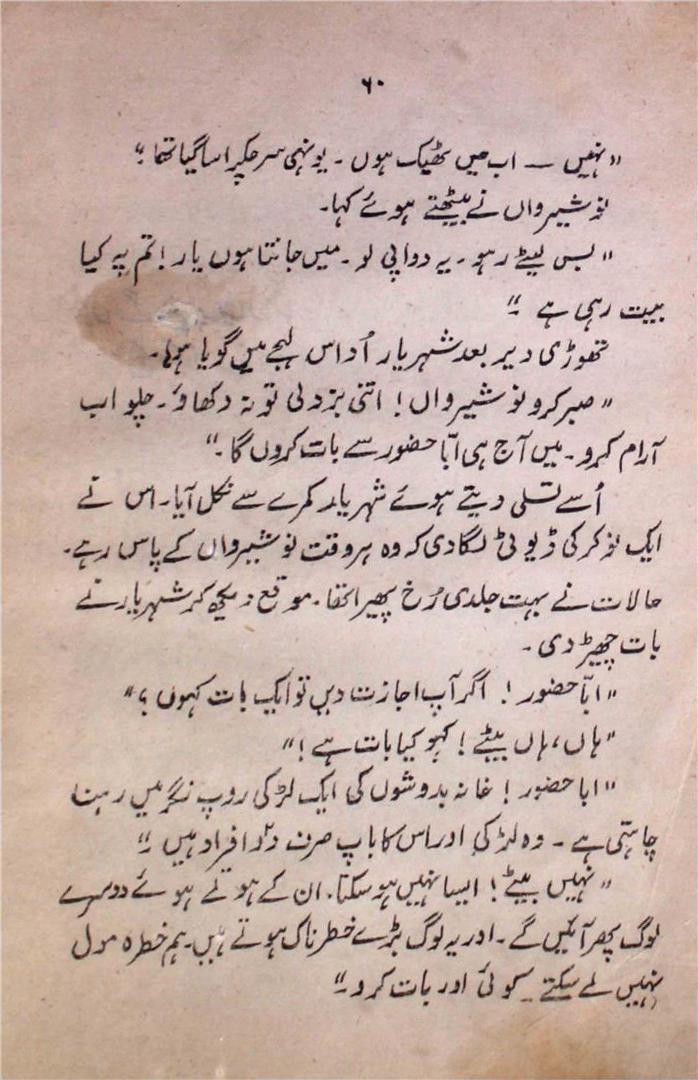 ۶۰
"نہیں — اب میں ٹھیک ہوں ۔ یونہی سر چکرا سا گیا تھا ؛"
نوشیرواں نے بیٹھتے ہوئے کہا۔
"بس لیٹے رہو ۔ یہ دوا پی لو ۔ میں جانتا ہوں یار ! تم پہ کیا
بیت رہی ہے ؛"
تھوڑی دیر بعد شہریار اُداس لہجے میں گویا ہوا۔
"صبر کرو نوشیرواں ! اتنی بزدلی تو نہ دکھاؤ ۔ چلو اب
آرام کرو ۔ میں آج ہی ابّا حضور سے بات کروں گا ۔"
اُسے تسلی دیتے ہوئے شہریار کمرے سے نکل آیا ۔ اس نے
ایک نوکر کی ڈیوٹی لگا دی کہ وہ ہر وقت نوشیرواں کے پاس رہے ۔
حالات نے بہت جلدی رُخ پھیرا تھا ۔ موقع دیکھ کر شہریار نے
بات چھیڑ دی ۔
"ابّا حضور ! اگر آپ اجازت دیں تو ایک بات کہوں ؟"
"ہاں ، ہاں بیٹے ! کہو کیا بات ہے !"
"ابا حضور ! خانہ بدوشوں کی ایک لڑکی روپ نگر میں رہنا
چاہتی ہے ۔ وہ لڑکی اور اس کا باپ صرف دو افراد ہیں ؛"
"نہیں بیٹے ! ایسا نہیں ہو سکتا ۔ ان کے ہوتے ہوئے دوسرے
لوگ پھر آئیں گے ۔ اور یہ لوگ بڑے خطرناک ہوتے ہیں ۔ ہم خطرہ مول
نہیں لے سکتے ۔ کوئی اور بات کرو ۔"